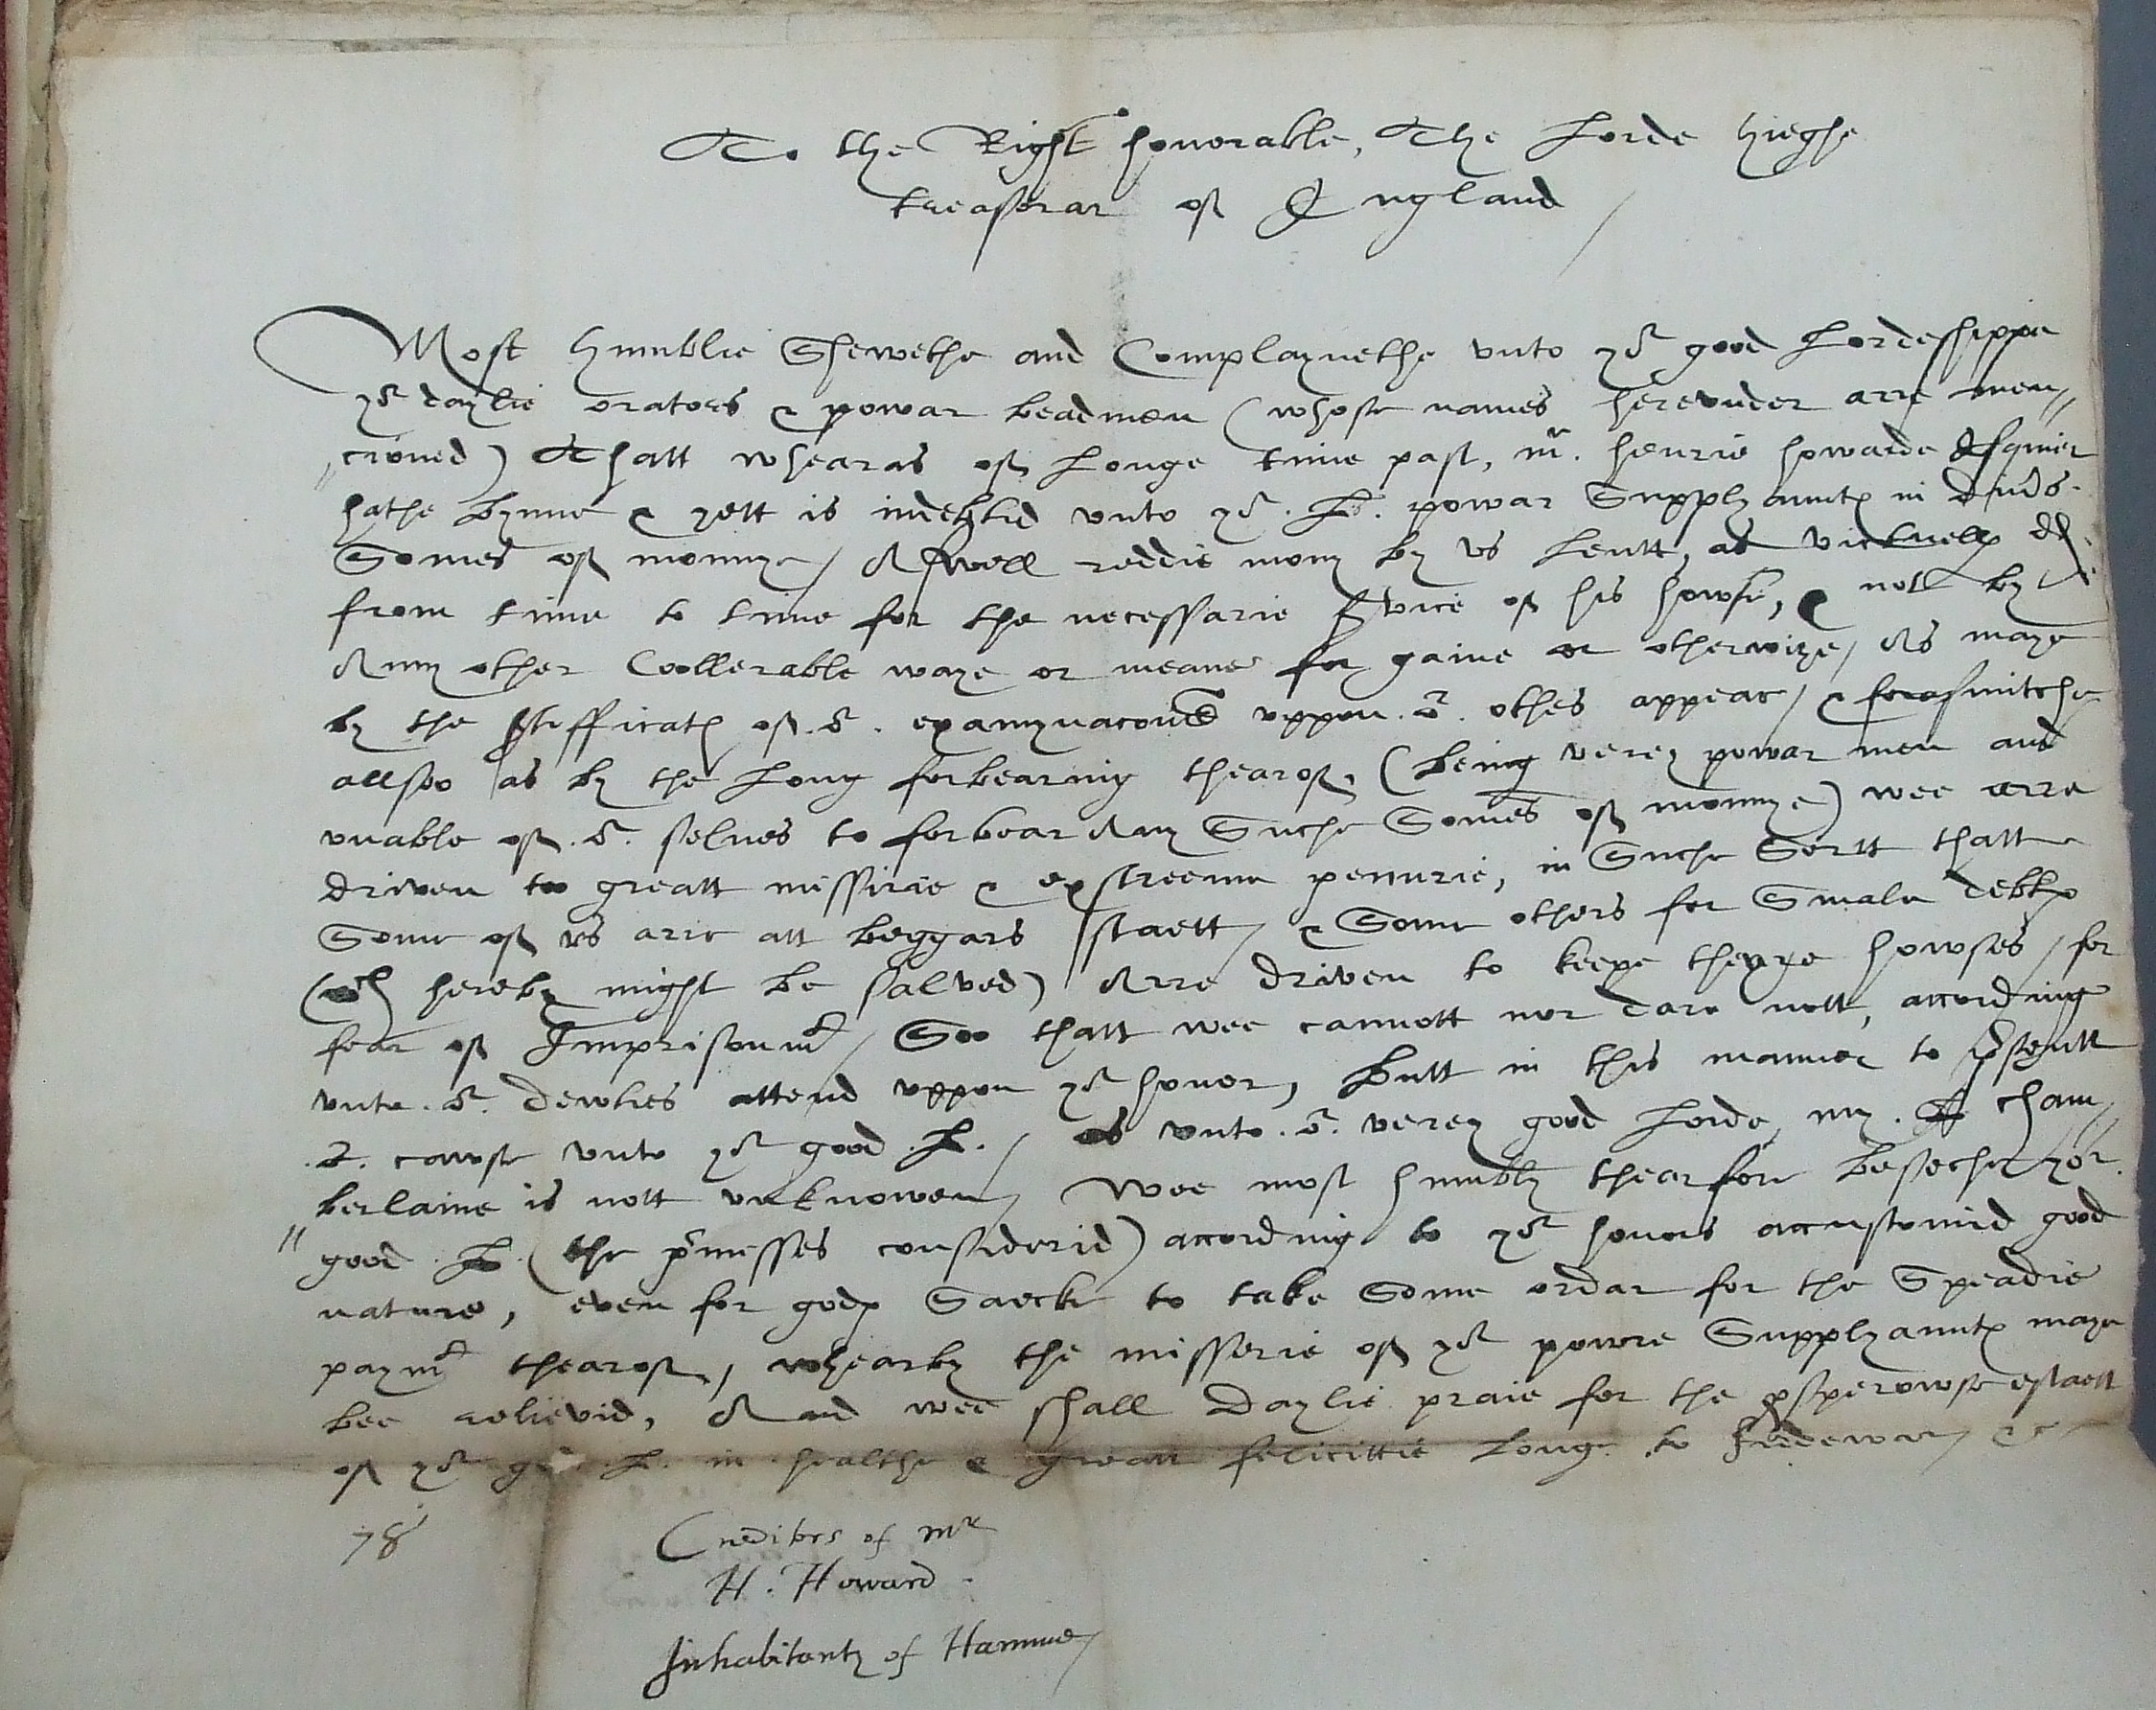 To the Right honorable, The Lorde hieghe
treasorar of England /
Most humblie Shewethe and Complaynethe vnto yor good Lordeshippe
yor daylie orators & powar beadmen (whose names herevnder arre men„
„cioned) Thatt whearas of Longe time past, mr. henrie howarde Esquier
hathe bynne & yett is indebtid vnto yor. L. powar Supplyauntes in diuers
Somes of monnye / Aswell reddie mony by vs Lentt, as victuells
from time to time for the necessarie service of his howse, & nott by
Anny other Coollerable waye or meanes for gaine or otherwize / As maye
by the of or. examynacons vppon or. othes appear / & forasmitche
allsoo as by the Long forbearing thearof, (being verey powar men and
vnable of or. selues to forbear Any Suche Somes of monnye) wee arre
driven too greatt missirie & exstreeme penurie, in Suche Sortt thatt
Some of vs arre att beggars staett / & Some others for Smale debtes
(wch hereby might be salved) Arre driven to keepe theyre howses / for
fear of Imprisonmt / Soo thatt wee cannott nor dare nott, according
vnto or. dewties attend vppon yor honor, Butt in this manner to presentt
or. cawse vnto yor good L. / as vnto or. verey good Lorde, my. L cham„
„berlaine is nott vnknowen / Wee most humbly thearfore beseche yor.
good L. (the premesses considerid) according to yor honors accustomid good
nature, even for godes Saecke to take Some ordar for the Speadie
paymt thearof, whearby the misserie of yor powre Supplyauntes maye
bee relievid, And wee shall Daylie praie for the prosperowse estaett
of yor L. in healthe & greatt felicittie Long to &c
78
Creditors of Mr
H. Howard.
Inhabitants of